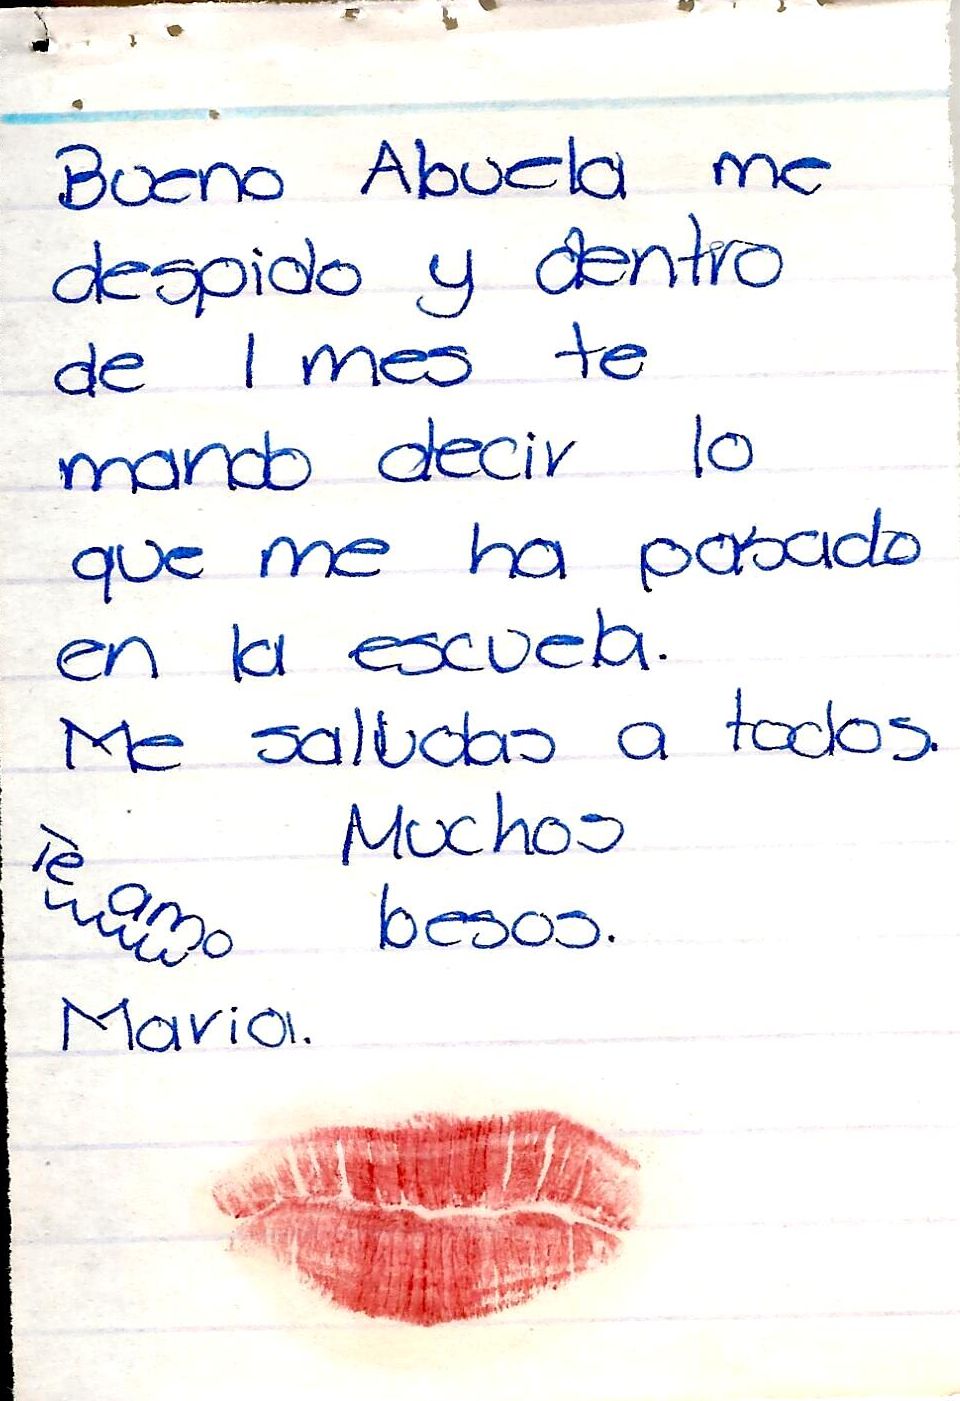 Bueno Abuela me
despido y dentro
de 1 mes te
mando decir lo
que me ha pasado
en la escuela.
Me saludas a todos.
Muchos
besos.
Te amo
Maria.